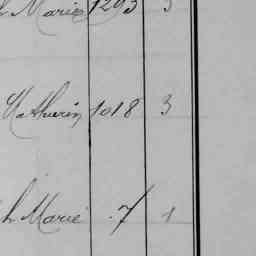 h Marie 1293 3
Mathurin 1018 3
h Marie 7 1